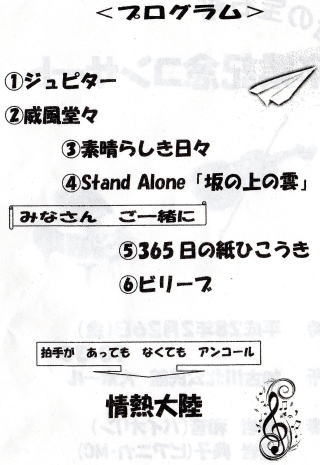 ＜プログラム＞
①ジュピター
②威風堂々
③素晴らしき日々
④Stand Alone「坂の上の雲」
みなさん　ご一緒に
⑤365日の紙ひこうき
⑥ビリーブ
拍手が　あっても　なくても　アンコール
情熱大陸